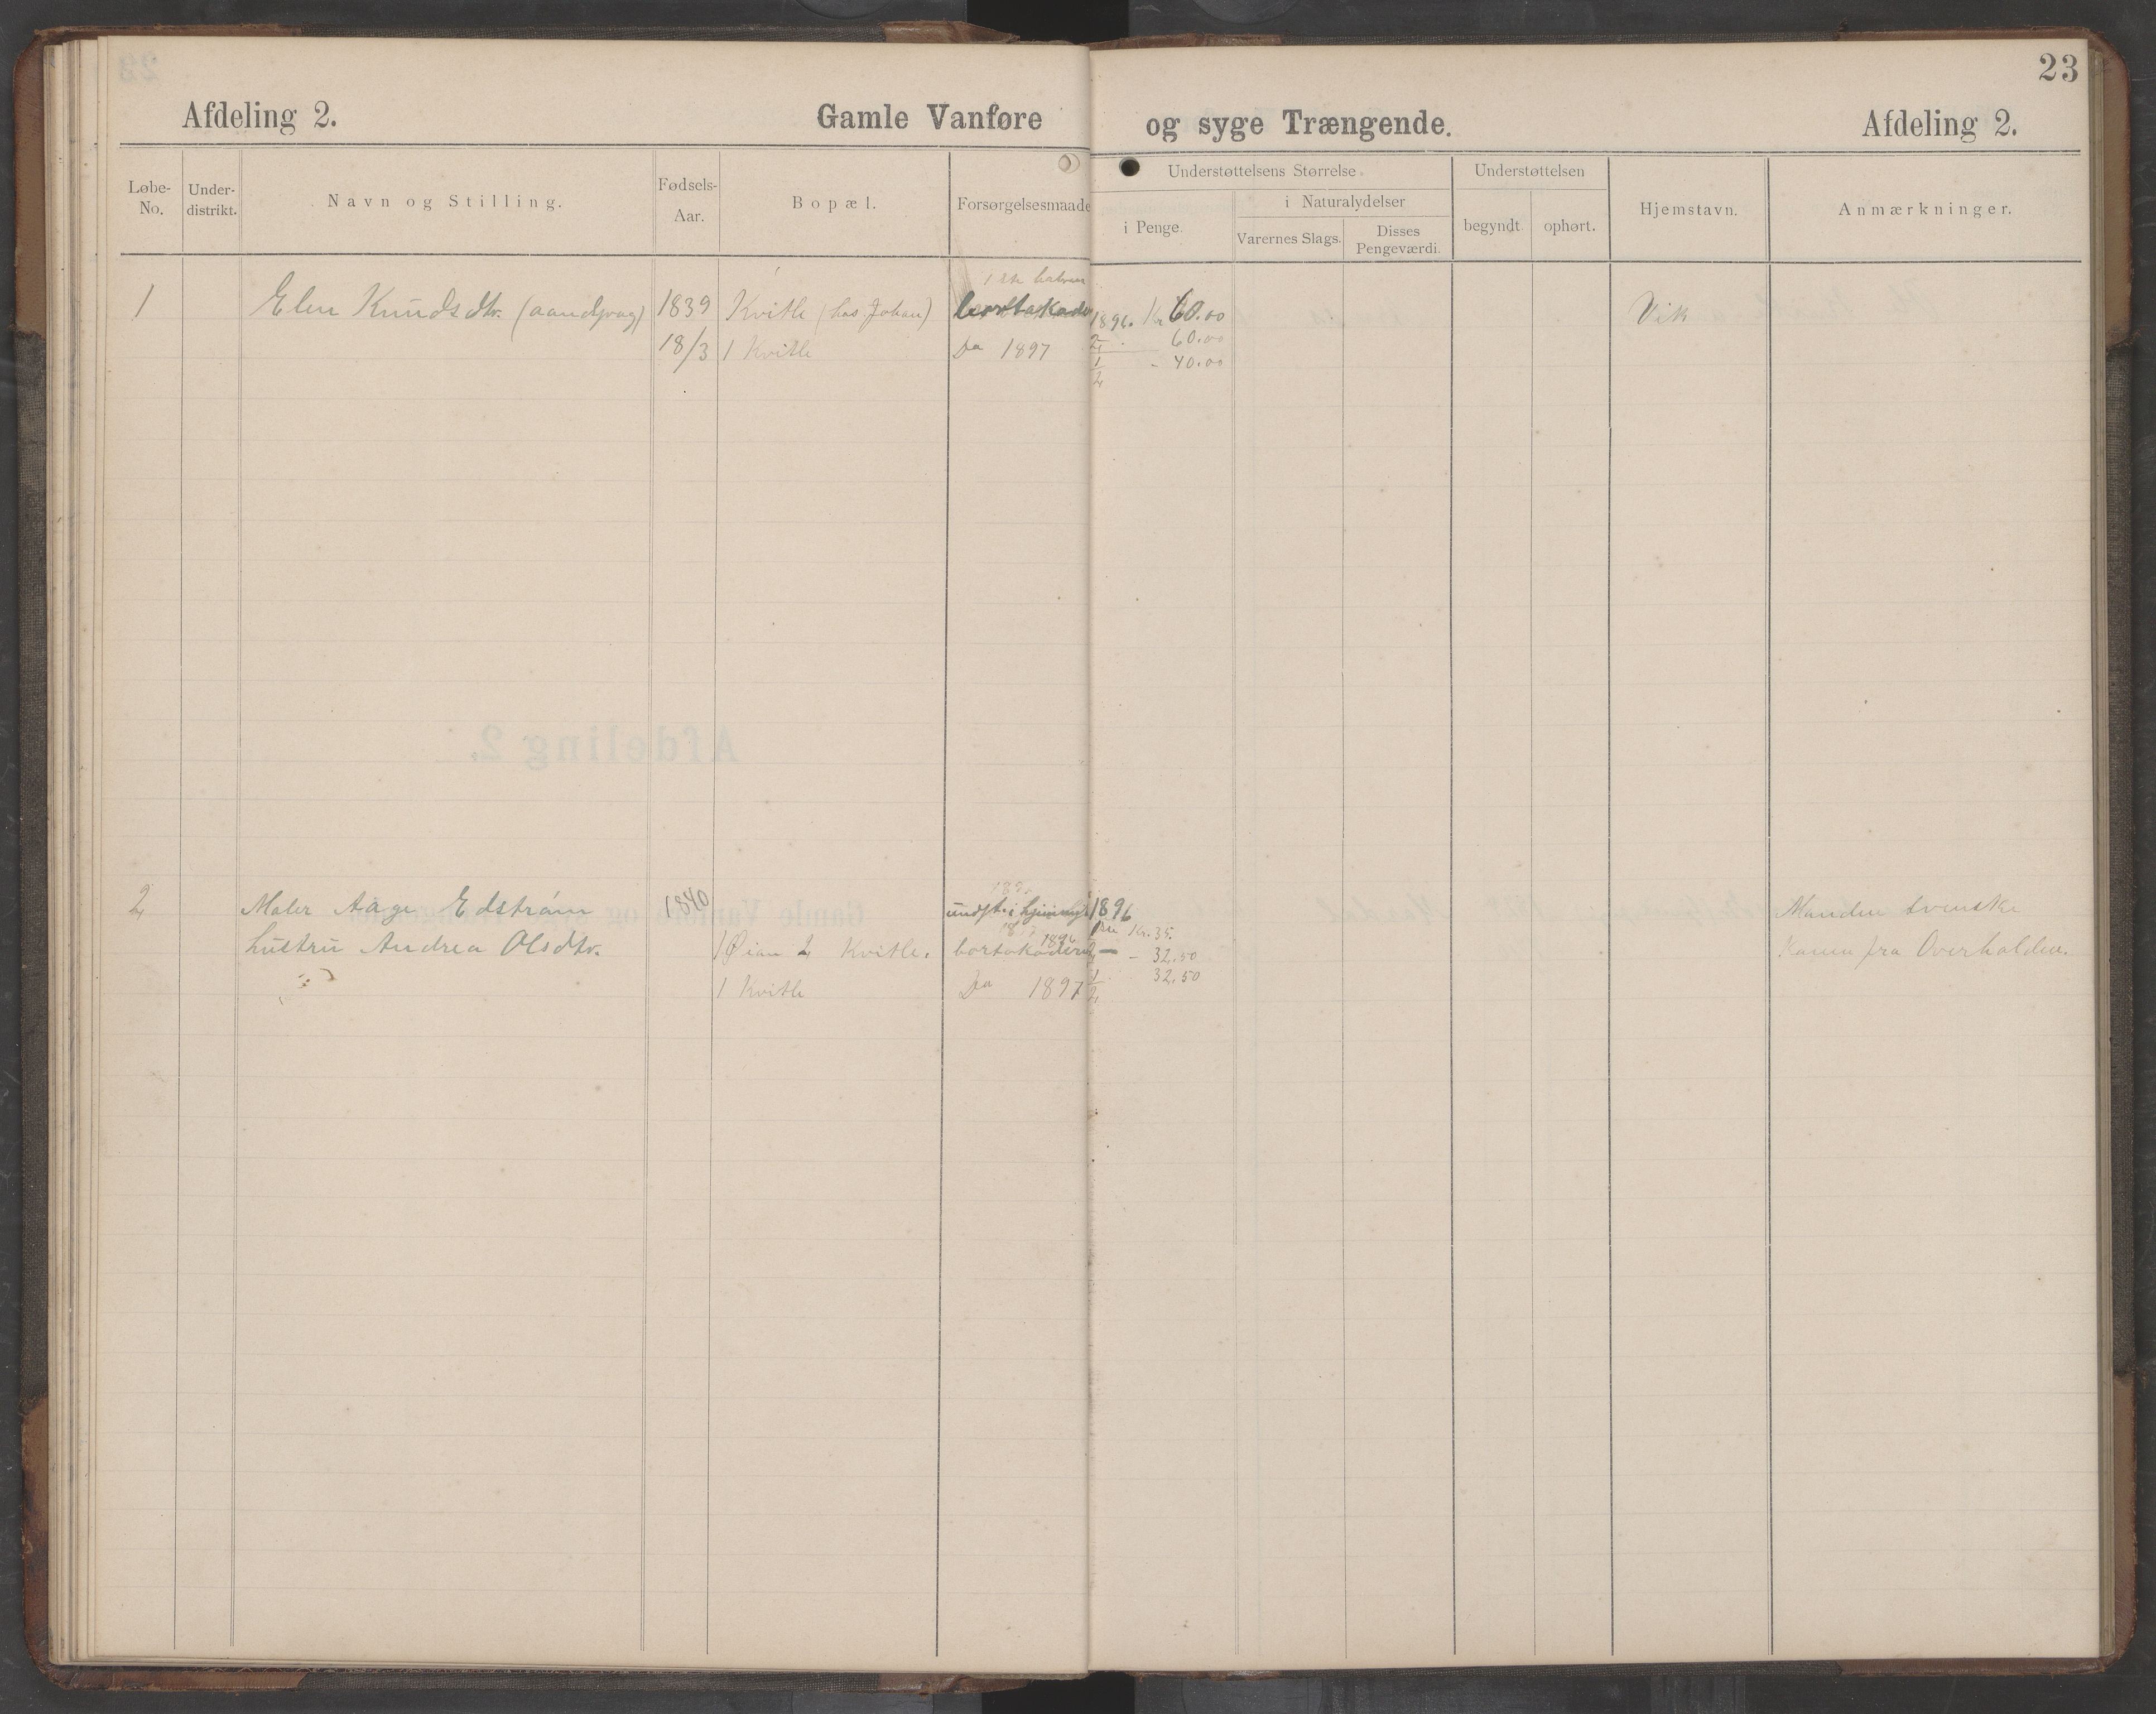 23
Afdeling 2. Gamle Vanføre og syge Trængende. Afdeling 2.
Løbe-No. Under-distrikt. Navn og Stilling. Fødsels-Aar. Bopæl. Forsørgelsesmaade
Understøttelsens Størrelse. Understøttelsen Hjemstavn. Anmærkninger.
i Penge. i Naturalydelser begyndt. ophørt.
Varernes Slags. Disses Pengeværdi.
1 Elen Knudsdtr. (aandsvag) 1839 Kvitle (hos Johan) bortakkord 1896. Kr 60.00 Vik
18/3 1 Kvitle Do 1897 60.00
1/2 - 40.00
2 Maler Aage Edstrøm 1840 1896 Manden svenske
Hustru Andrea Olsdtr. 1 Øien 2 Kvitle. 1896 Kr. 35. Konen fra Overhalden.
- 32.50
1 Kvitle Do 1897 1/2 32.50